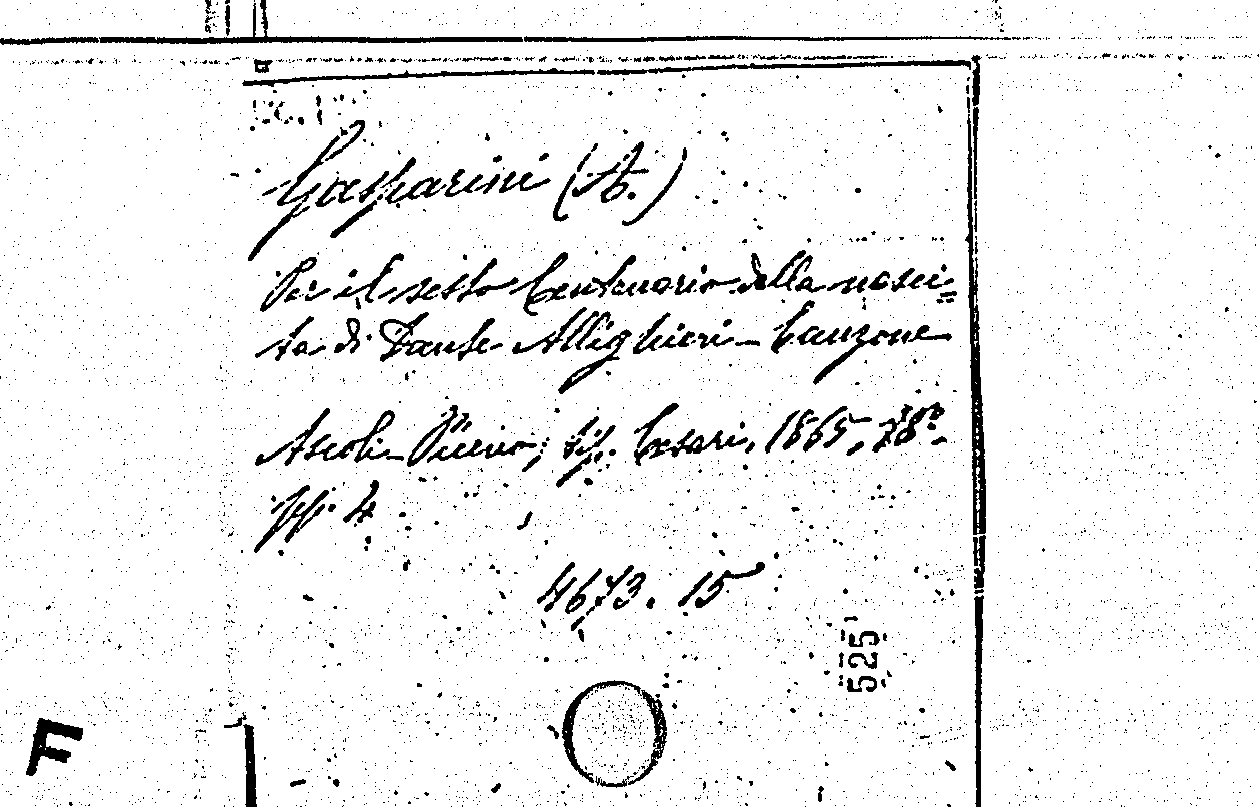 Gasparini (A.)
Per il sesto Centenario della nasci=
ta di Dante Allighieri - Canzone
Ascoli-Piceno, tip. Cesari, 1865,
pp. 4
4673. 15
525
F